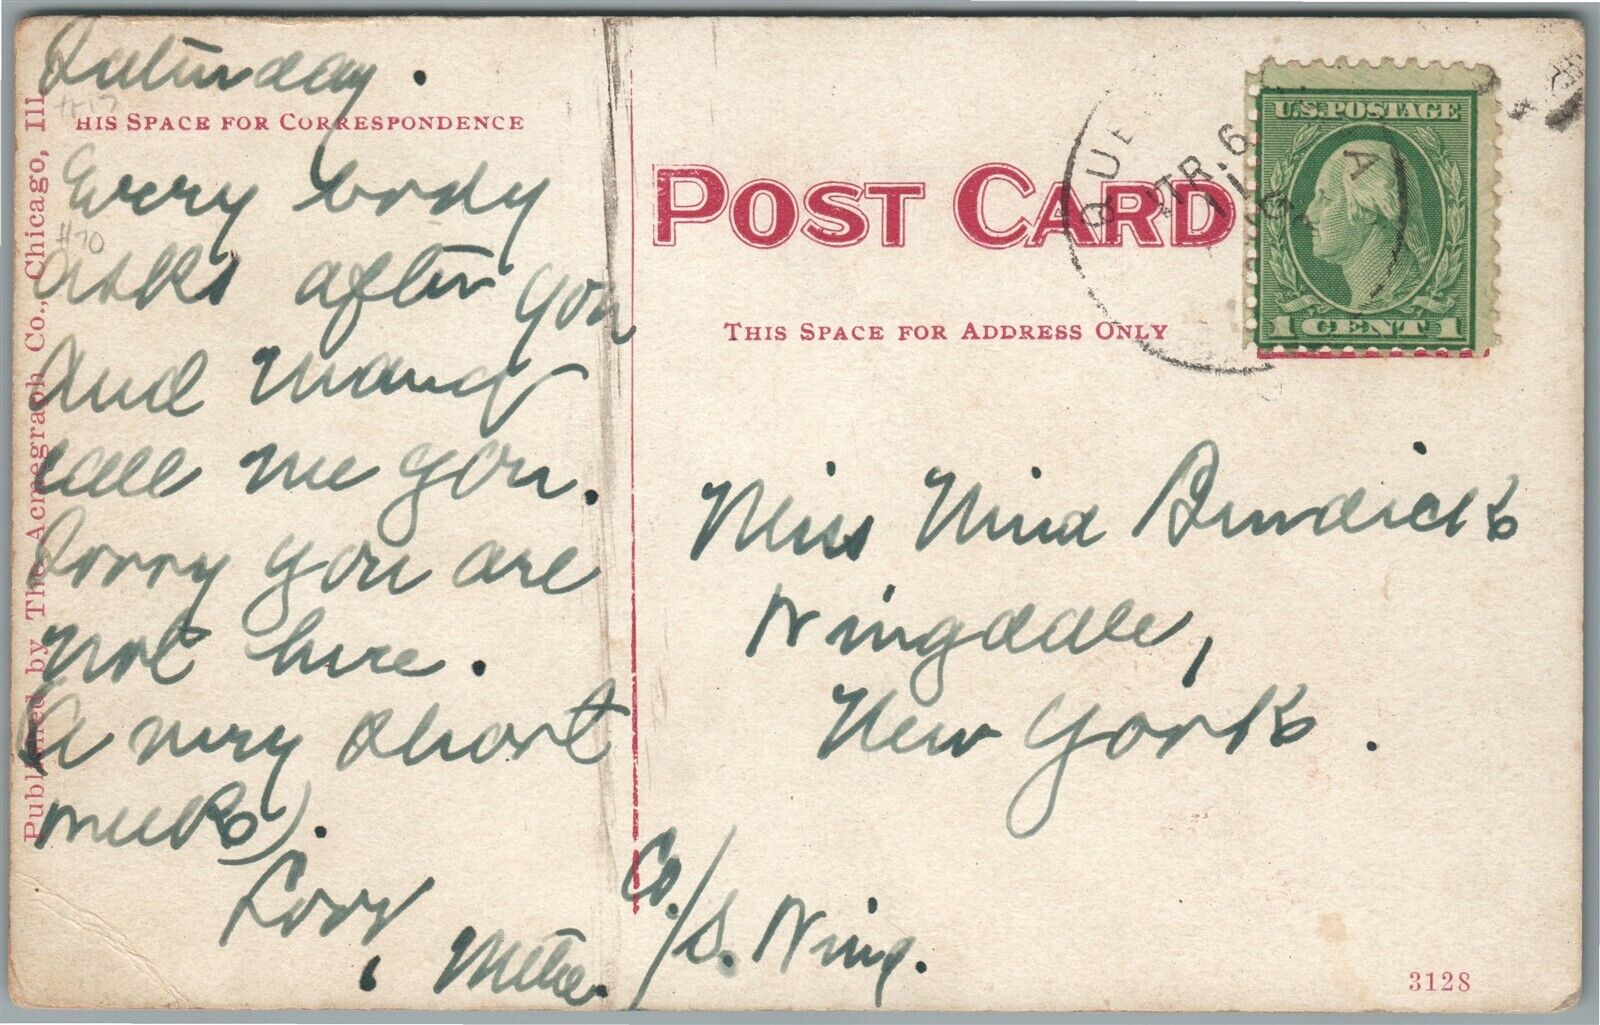 Saturday.
HIS SPACE FOR CORRESPONDENCE
Every body
asks after you
And many
call me you.
Sorry you are
not here.
(A very short
week).
Love
#70
Published by The Acmegraph Co., Chicago, Ill.
POST CARD
THIS SPACE FOR ADDRESS ONLY
U.S. POSTAGE
1 CENT 1
Miss Nina Burdick
Wingdale,
New York.
Co/S. Wing.
3128